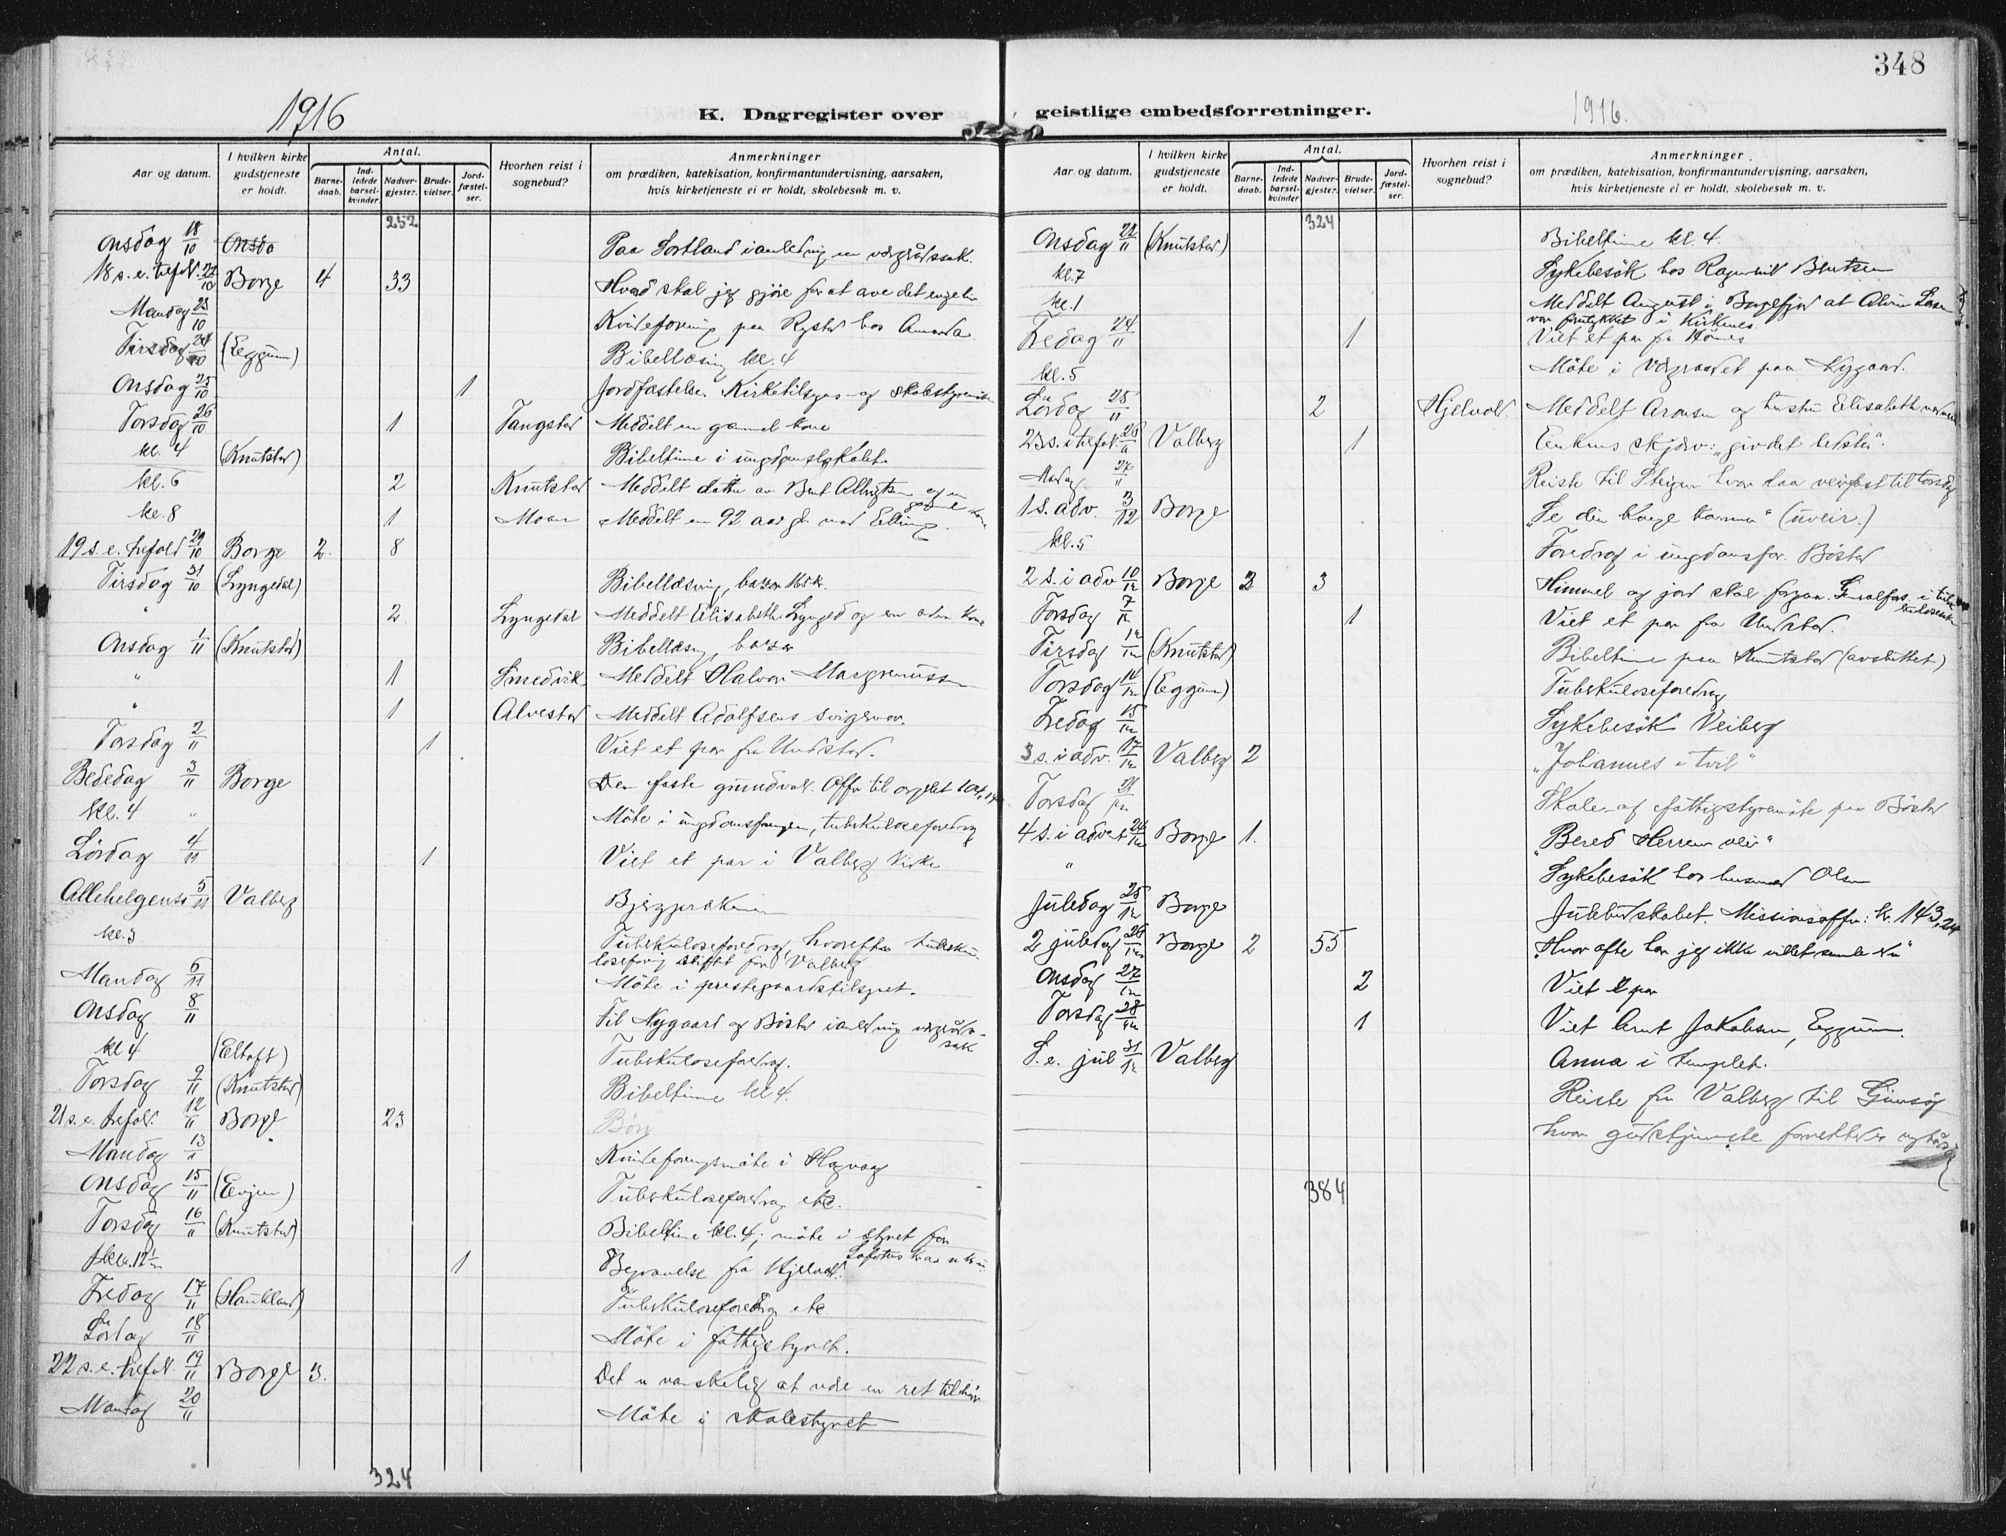 348
1916
K. Dagregister over geistlige embedsforretninger.
1916.
Aar og datum.
I hvilken kirke gudstjeneste er holdt.
Antal.
Barne-daab.
Ind-ledede barsel-kvinder.
Nadver-gjester.
Brude-vielser.
Jord-fæstel-ser.
Hvorhen reist i sognebud?
Anmerkninger
om prædiken, katekisation, konfirmantundervisning, aarsaken,
hvis kirketjeneste ei er holdt, skolebesøk m. v.
252
Onsdag 18/10 Onsda Paa Sortland i anledning en vergråds​sak.
18 s. e. trefold. 22/10 Borge 4 33 Hvad skal jeg gjöre for at arve det evige liv
Mandag 23/10 Kvindeforening paa Rystad hos Amanda.
Tirsdag 24/10 (Eggum) Bibellæsning kl. 4
Onsdag 25/10 1 Jordfæstelse. Kirketilsyns- og skolestyremöte
Torsdag 26/10 1 Tangstad Meddelt en gammel kone
kl. 4 (Knutstad) Bibeltime i ungdomslokalet
kl. 6 2 Knutstad Meddelt datter av Bert Albrigtsen og en gammel kone
kl. 8 1 Moan Meddelt en 92 aar gl. ved Elling
19 s. e. trefold 29/10 Borge 2. 8
Tirsdag 31/10 (Lyngedal) Bibellæsning, basar
" 2 Lyngedal Meddelt Elisabeth Lynged og en aden kone
Onsdag 1/11 (Knutstad) Bibellæsn, basar
" 1 Smedvik Meddelt Halvor Margremussen
" 1 Alvestad Meddelt Adolfsens svigermor.
Torsdag 2/11 1 Viet et par fra Undstad.
Bededag 3/11 Borge Den faste grundvol. Offer til orgelet 104,14
kl. 4 " Möte i ungdomsforeningen, tuberkuloseforedrag
Lördag 4/11 1 Viet et par i Valberg kirke
Allehelgens 5/11 Valberg Bjergprækenen
kl. 3 Tuberkuloseforedrag hvorefter tuberkuloseforening stiftet for Valberg
Mandag 6/11 Möte i prestegaardstilsynet.
Onsdag 8/11 Til Nygaard og Böstad i anledning vergråds-sak
kl 4 (Eltoft) Tuberkuloseforedrag.
Torsdag 9/11 (Knutstad) Bibeltime kl 4.
21 s. e. trefold. 12/11 Borge 23
Mandag 13/11 Kvindeforeningsmöte i Hagvag
Onsdag 15/11 (Evjen) Tuberkuloseforedrag etc.
Torsdag 16/11 (Knutstad) Bibeltime kl. 4; möte i styret for Lofotens
kl. 12 1 Begravelse fra Hjelvol.
Fredag 17/11 (Haukland) Tuberkuloseforedrag etc
Lördag 18/11 Möte i fattigstyret.
22 s. e. trefol. 19/11 Borge 3. Det er vanskelig at være en ret tilhörer
Mandag 20/11 Möte i skolestyret
324
Aar og datum.
I hvilken kirke gudstjeneste er holdt.
Antal.
Barne-daab.
Ind-ledede barsel-kvinder
Nadver-gjester.
Brude-vielser.
Jord-fæstel-ser.
Hvorhen reist i sognebud?
Anmerkninger.
om prædiken, katekisation, konfirmantundervisning, aarsaken,
hvis kirketjeneste ei er holdt, skolebesøk m. v.
324
Onsdag 22/11 (Knutstad) Bibeltime kl. 4.
kl. 7 Sykebesök hos Ragnvald Bentsen
kl. 1 Meddelt August i Borgefjord at Alvin
var forulykket i Kirkenes
Fredag 24/11 1 Viet et par fra Hömes
kl. 5 Möte i vergraadet paa Nygaard.
Lördag 25/11 2 Hjelvol Meddelt Aronsen og hustru Elisabeth
23 s. i trefol. 26/11 Valberg 1 Enkens skjærv: "giv det bedste".
Mandag 27/11 Reiste til Steigen hvor laa veirfast til torsdag
1 s. adv. 3/12 Borge "Se din konge kommer" (uveir.)
kl. 5 Foredrag i ungdomsfor. Böstad
2 s. i adv 10/12 Borge 3 3 Himmel og jord skal forgaa.
Torsdag 7/12 1 Viet et par fra Undstad.
Tirsdag 12/12 (Knutstad) Bibeltime paa Knutstad (avsluttet)
Torsdag 14/12 (Eggum) Tuberkuloseforedrag
Fredag 15/12 Sykebesök Veiberg
3 s. i adv. 17/12 Valberg 2 "Johannes i tvil"
Torsdag 21/12 Skole- og fattigstyremöte paa Böstad
4 s. i advent 24/12 Borge 1. "Bered Herrens vei"
" Sykebesök hos husmand Olsen
Juledag 25/12 Borge Julebudskabet. Missionsoffer: kr. 143,24
2 juledag 26/12 Borge 2 55 "Hvor ofte har jeg ikke villet samle"
Onsdag 27/12 2 Viet 2 par
Torsdag 28/12 1 Viet Arnt Jakobsen, Eggum.
S. e. jul 31/12 Valberg Anna i templet.
Reiste fra Valberg til Gimsöy
hvor gudstjeneste forrettedes nytårs
384